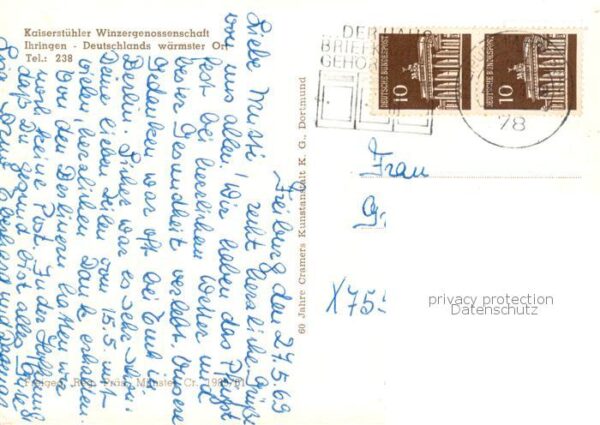 Kaiserstühler Winzergenossenschaft
Ihringen - Deutschlands wärmster Ort
Tel.: 238
DER HAUS
BRIEFK
GEHÖR
DEUTSCHE BUNDESPOST
10
DEUTSCHE BUNDESPOST
10
78
Freiburg, den 27.5.69
Liebe Mutti! recht herzliche Grüße
von uns allen. Wir haben das Pfingst
fest bei herrlichem Wetter und
bester Gesundheit verlebt. Unsere
Gedanken war oft bei Euch in
Berlin. Sicher war es sehr schön.
Deine lieben Zeilen vom 15.5. mit
vielen herzlichen Dank erhalten.
Von den Berlinern hatten wir
noch keine Post. In der Hoffnung
daß Du gesund bist alles Gute
60 Jahre Cramers Kunstanstalt K. G., Dortmund
Freigeg. Reg. Präs. Münster Cr.
Frau
X755
privacy protection
Datenschutz